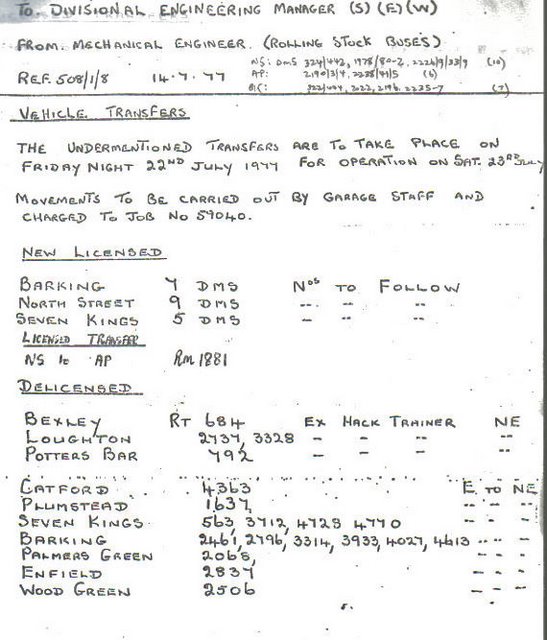 TO DIVISIONAL ENGINEERING MANAGER (S) (E) (W)
FROM MECHANICAL ENGINEER. (ROLLING STOCK BUSES)
NS: DMS 324/442, 1978/80-2, 2226/9/33/9 (10)
REF. 508/1/8 14.7.77
AP: (6)
BC: 2235-7 (7)
VEHICLE TRANSFERS
THE UNDERMENTIONED TRANSFERS ARE TO TAKE PLACE ON
FRIDAY NIGHT 22ND JULY 1977 FOR OPERATION ON SAT. 23RD JULY
MOVEMENTS TO BE CARRIED OUT BY GARAGE STAFF AND
CHARGED TO JOB NO 59040.
NEW LICENSED
BARKING 7 DMS NOS TO FOLLOW
NORTH STREET 9 DMS -- -- --
SEVEN KINGS 5 DMS - -- --
LICENSED TRANSFER
NS to AP RM 1881
DELICENSED
BEXLEY RT 684 EX HACK TRAINER NE
LOUGHTON 2737, 3328 - - -- --
POTTERS BAR 792 - - -- --
CATFORD 4363 E TO NE
PLUMSTEAD 1637, -- -- --
SEVEN KINGS 563, 3712, 4728 4770 - - -
BARKING 2461, 2796, 3314, 3933, 4027, 4613 -- -- --
PALMERS GREEN 2065, - - --
ENFIELD 2837 - - --
WOOD GREEN 2506 - - --